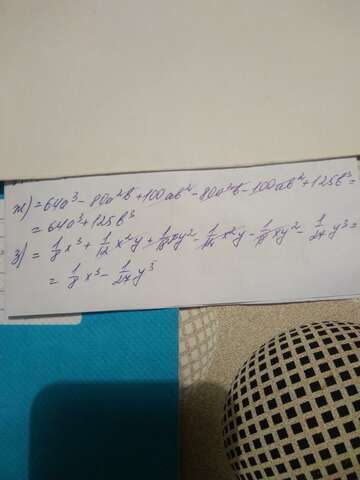 ж) = 64a³ - 80a²b + 100ab² - 80a²b - 100ab² + 125b³ =
= 64a³ + 125b³
з) = 1/8 x³ + 1/12 x²y + 1/18 xy² - 1/12 x²y - 1/18 xy² - 1/27 y³ =
= 1/8 x³ - 1/27 y³